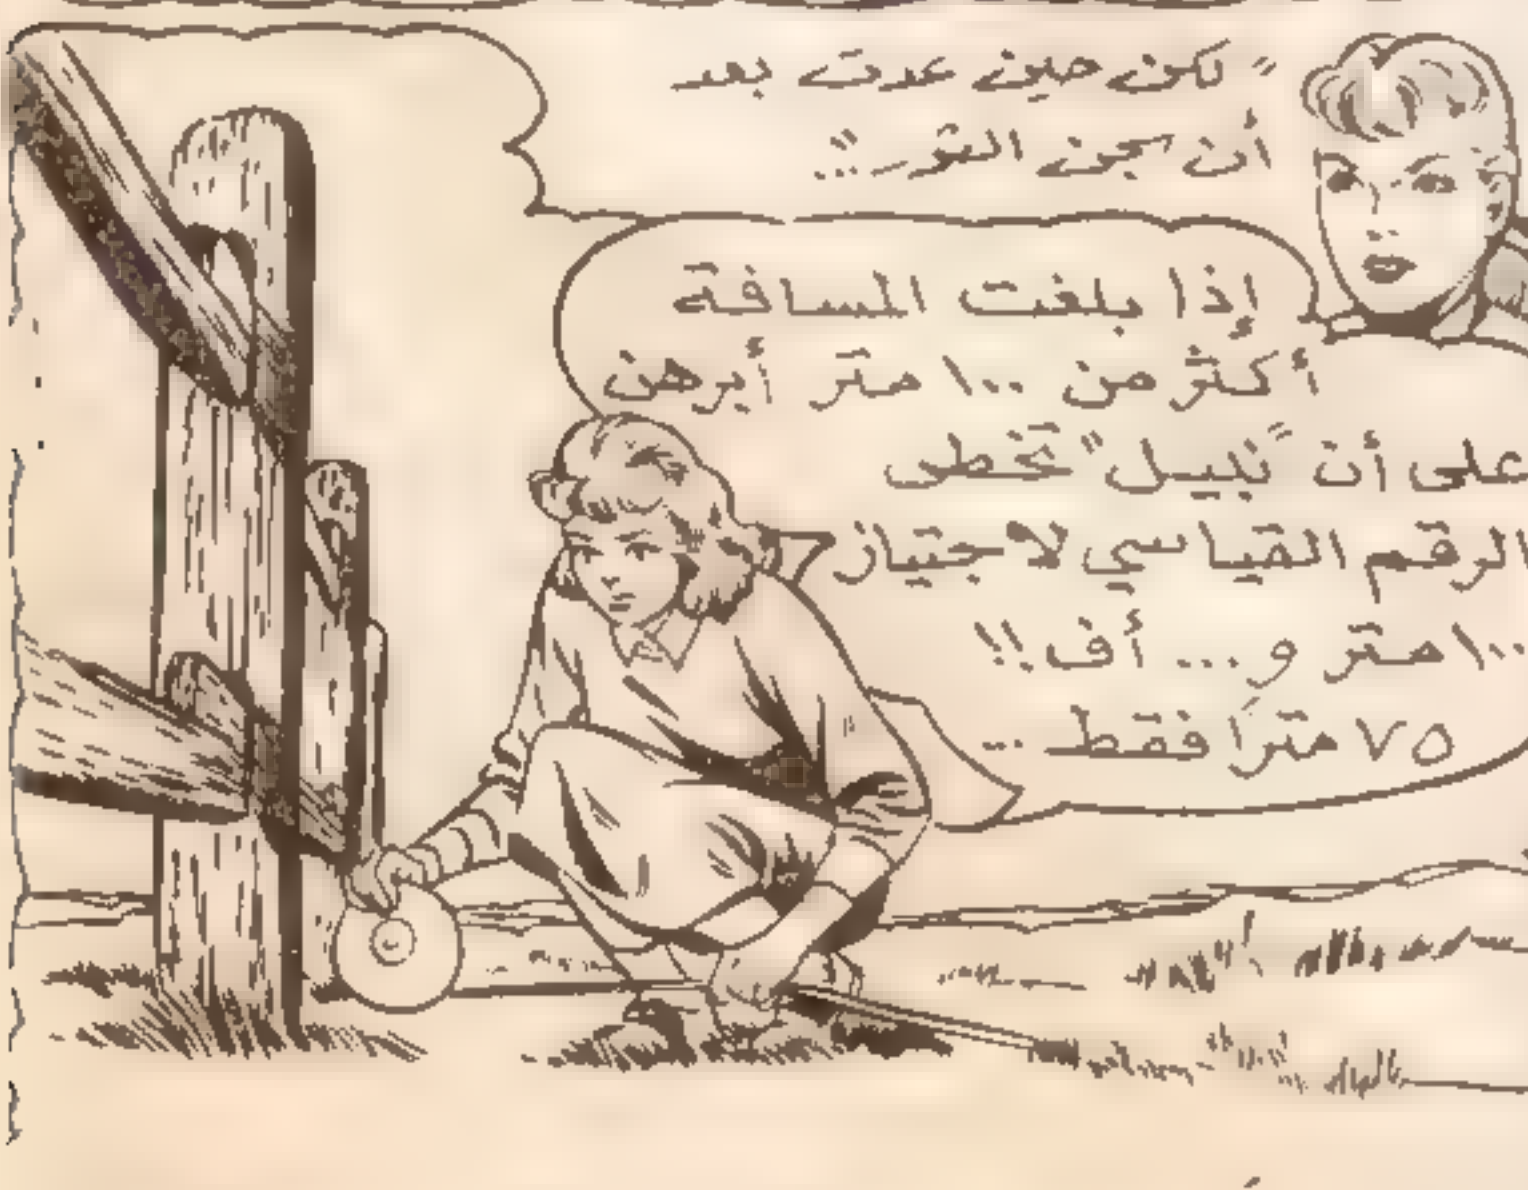 " لكن حين عدت بعد
أن سجن الثور ...:
إذا بلغت المسافة
أكثر من ١٠٠ متر أبرهن
على أن "نبيل" تخطى
الرقم القياسي لاجتياز
١٠٠ متر و... أف !!
٧٥ متراً فقط ...